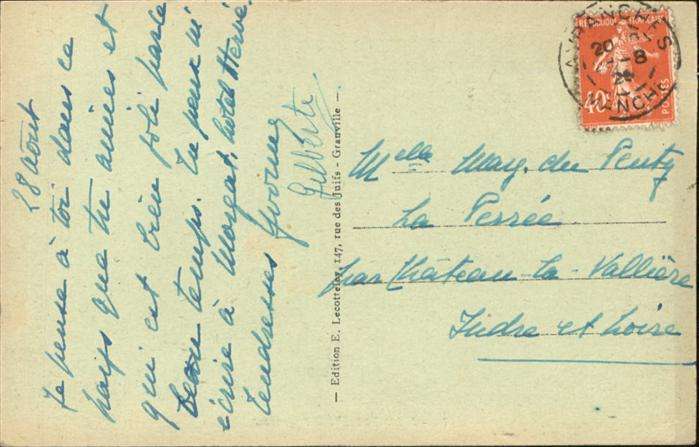 28 août
Je pense à toi dans ce
pays que tu aimes et
qui est bien joli par le
beau temps. Tu peux m'
écrire à Morgat, hotel Hervé.
Tendresses Yvonne
Gilberte
— Edition E. Lecotteley, 147, rue des Juifs - Granville —
Melle May. du
La Perrée
par Château-la-Vallière
Indre et Loire
REPUBLIQUE FRANÇAISE
40c
POSTES
AVRANCHES
20
-8
MANCHE